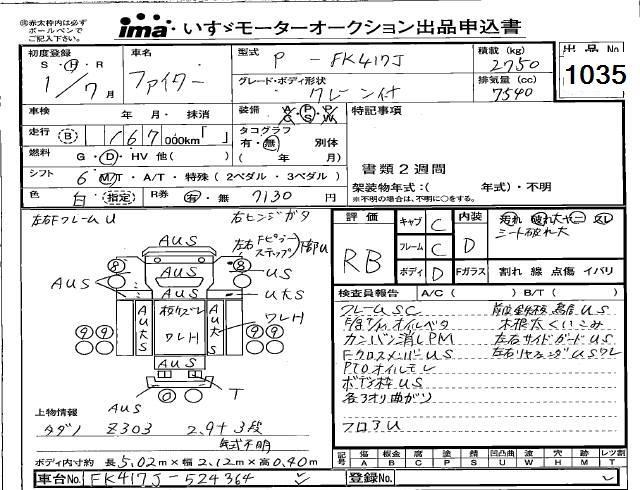 ㊟赤太枠内は必ず
ボールペンで
ご記入下さい。
ima いすゞモーターオークション出品申込書
初度登録
S・H・R
1/7月
車名
ファイター
型式
P-FK417J
積載 (kg)
2750
出品No.
1035
グレード・ボディ形状
クレーン付
排気量 (cc)
7540
車検
年 月・抹消
装備
A/C P/S P/W
特記事項
走行
B 167 000km「 」
タコグラフ
有・無 別体
( 年 月)
燃料
G・D・HV 他( )
書類2週間
シフト
6 M/T・A/T・特殊(2ペダル・3ペダル)
架装物年式:( 年式)・不明
※不明の場合は、不明に〇をする。
色
白・指定
R券
有・無 7130 円
左右Fフレーム U
右ヒンジガタ
AUS
左右Fピラー
ステップ
下部U
8
8
US
AUS
UもS
AUS
ワレH
9 9
9 9
T
AUS
評価
RB
キャブ C
フレーム C
ボディ D
内装
D
汚れ 破れ大 コゲ スレ
シート破れ大
Fガラス
割れ 線 点傷 イバリ
検査員報告
A/C ( ) B/T ( )
フレームSC
カンバン消しPM
左右サイドガードUS
FクロスメンバーUS
PTOオイルモレ
ボデー枠US
各アオリ曲ガリ
フロアU
上物情報
タダノ Z303 2.9t 3段
年式不明
ボディ内寸約 長5.02m×幅2.12m×高0.40m
記号
傷 A
板金 B
腐 C
塗 P
錆 S
凹凸曲 U
波 W
穴 H
跡 M
レツ割 T
車台No.
FK417J-524364
登録No.